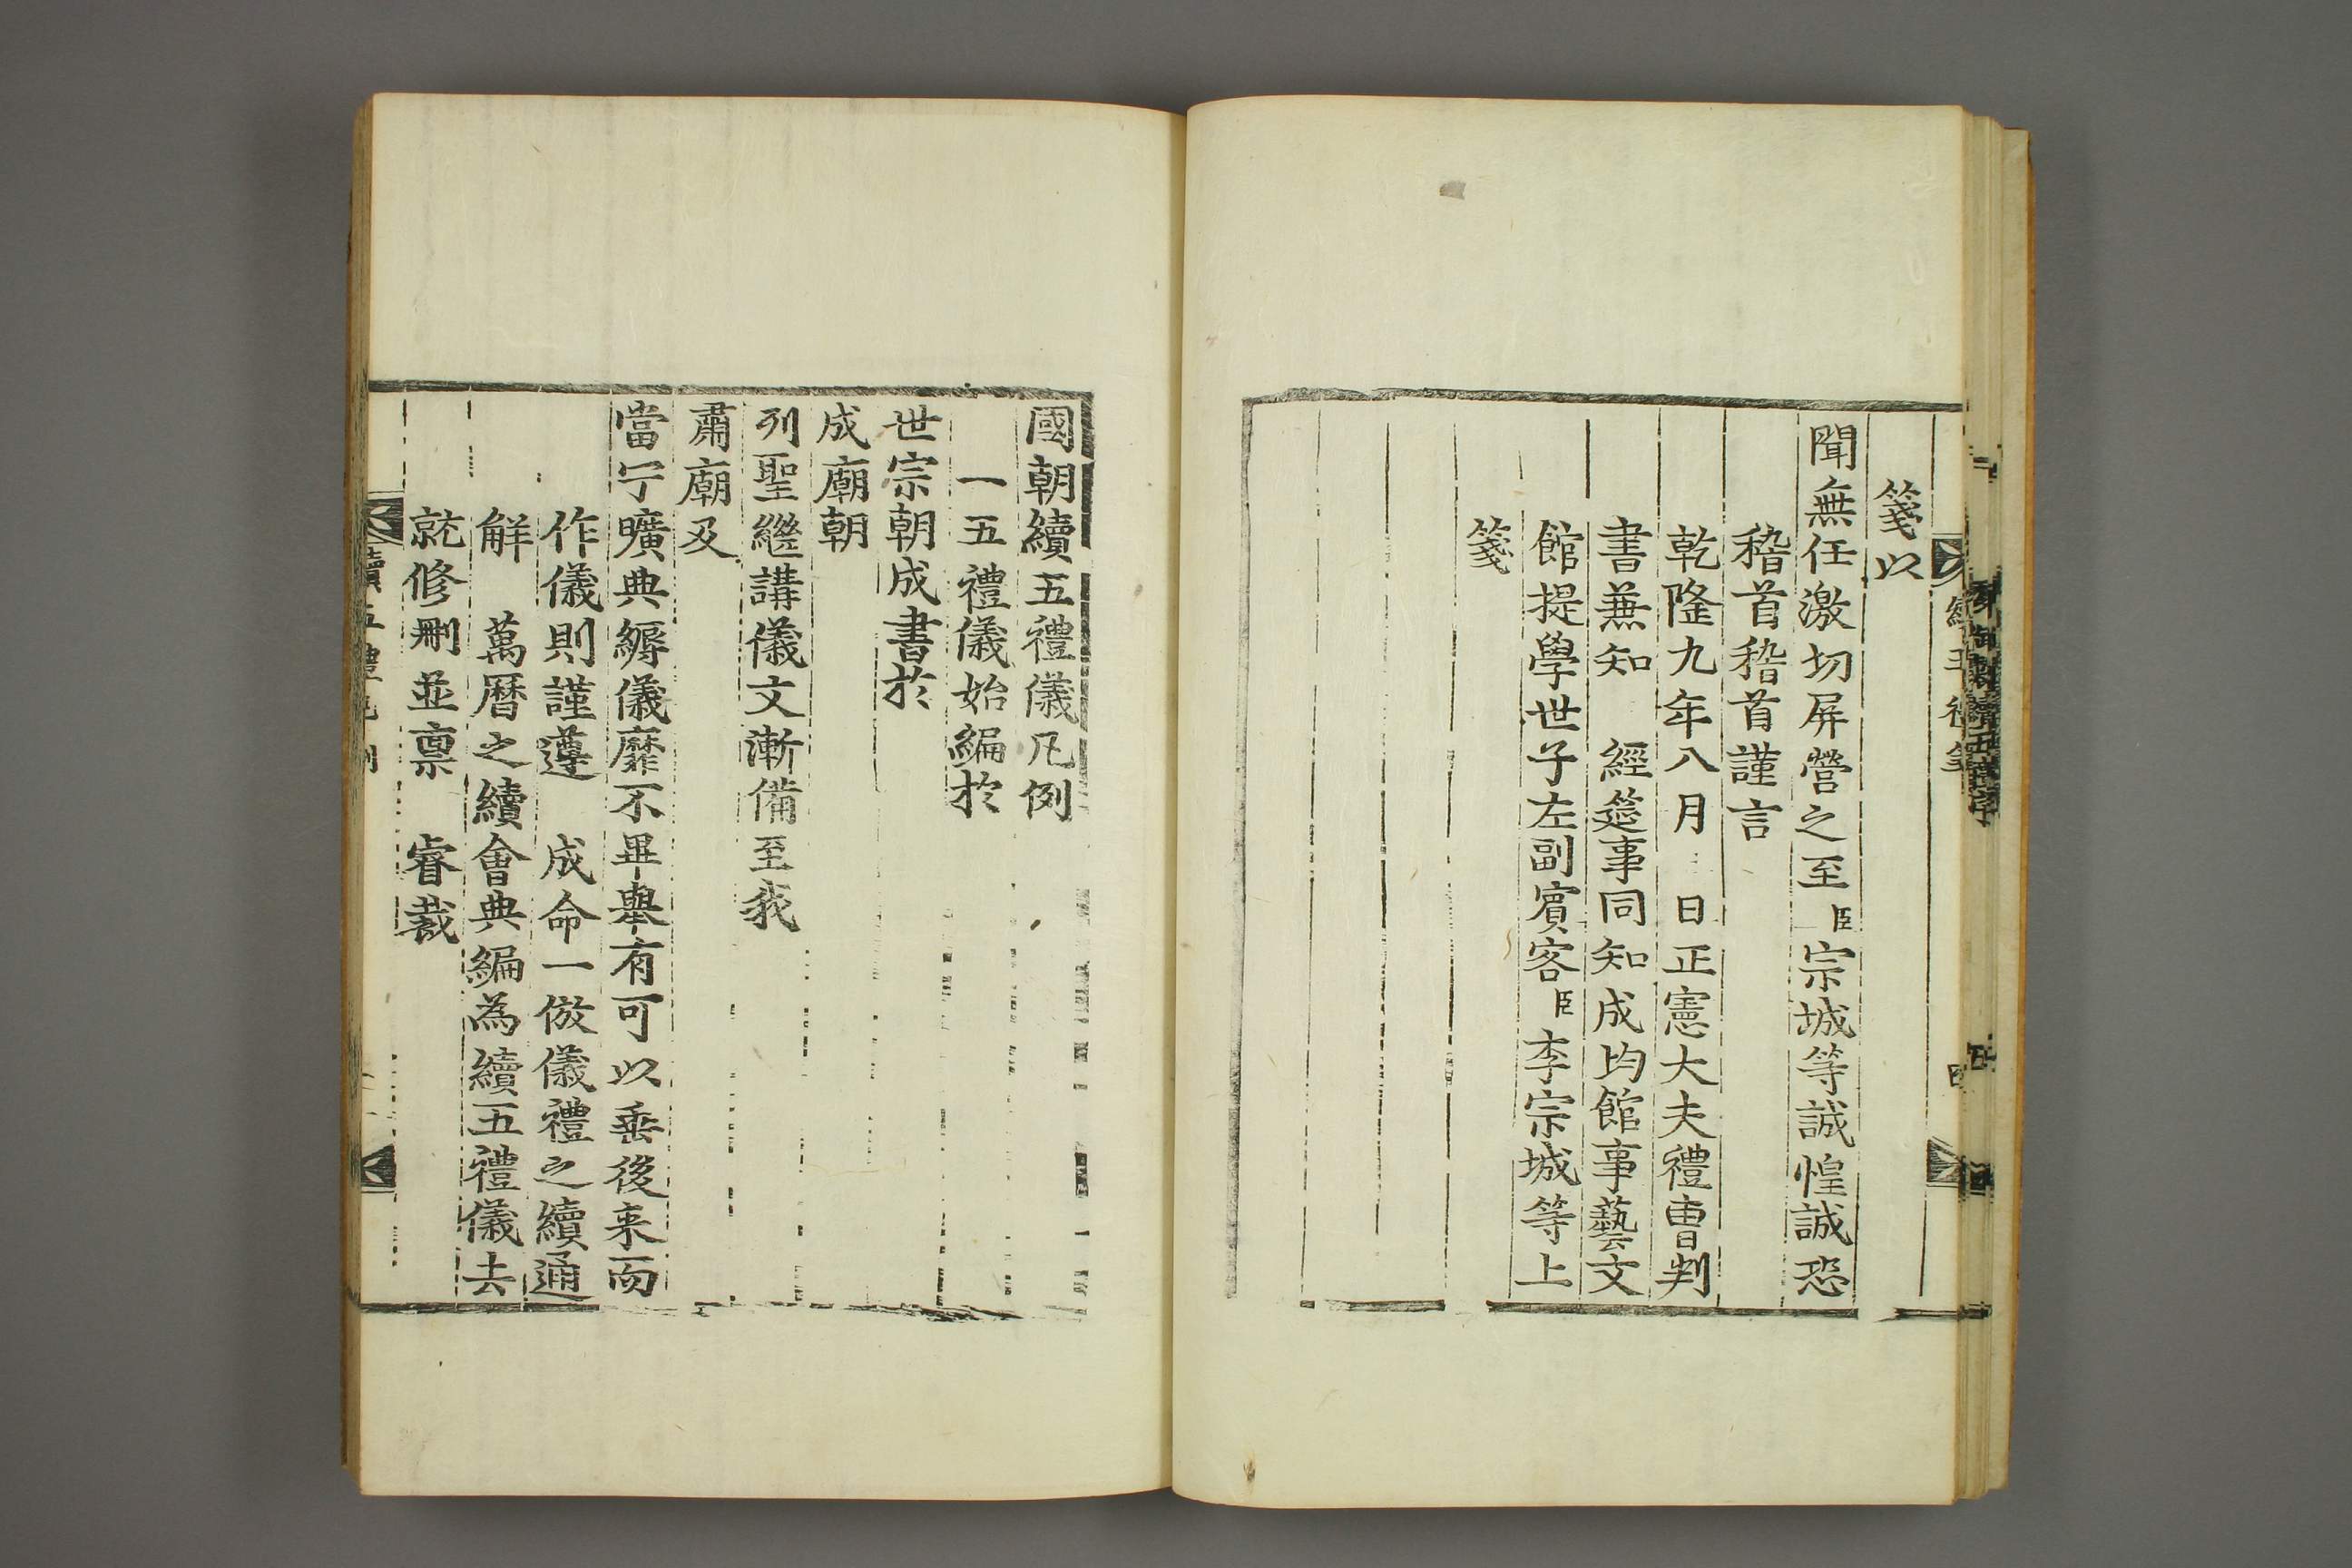 箋以
聞無任激切屏營之至臣宗城等誠惶誠恐
稽首稽首謹言
乾隆九年八月 日正憲大夫禮曹判
書兼知 經筵事同知成均館事藝文
館提學世子左副賓客臣李宗城等上
箋
國朝續五禮儀凡例
一五禮儀始編於
世宗朝成書於
成廟朝
列聖繼講儀文漸備至我
肅廟及
當宁曠典縟儀靡不畢舉有可以垂後来而
作儀則謹遵 成命一倣儀禮之續通
解 萬曆之續會典編為續五禮儀去
就修刪並稟 睿裁